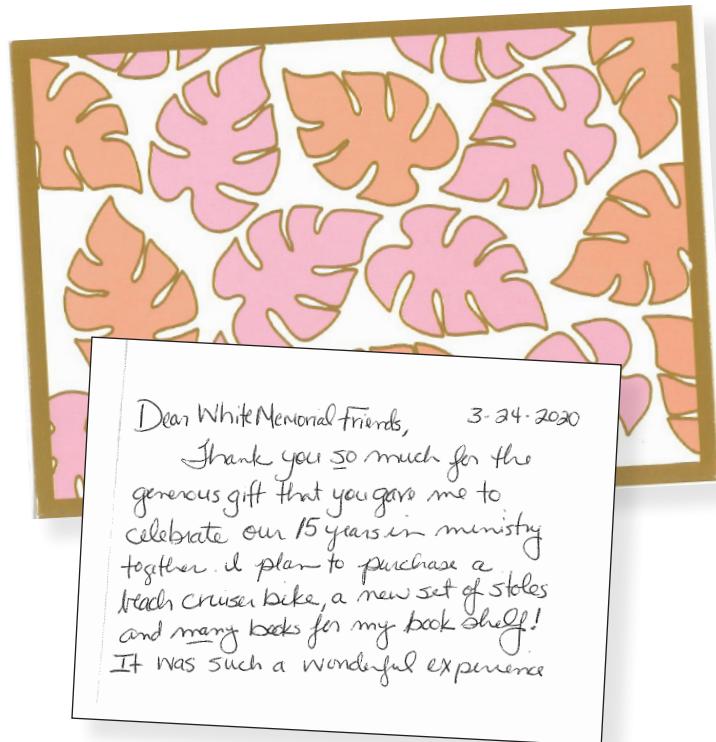 Dear White Memorial Friends, 3-24-2020
Thank you so much for the
generous gift that you gave me to
celebrate our 15 years in ministry
together. I plan to purchase a
beach cruiser bike, a new set of stoles
and many books for my book shelf!
It was such a wonderful experience